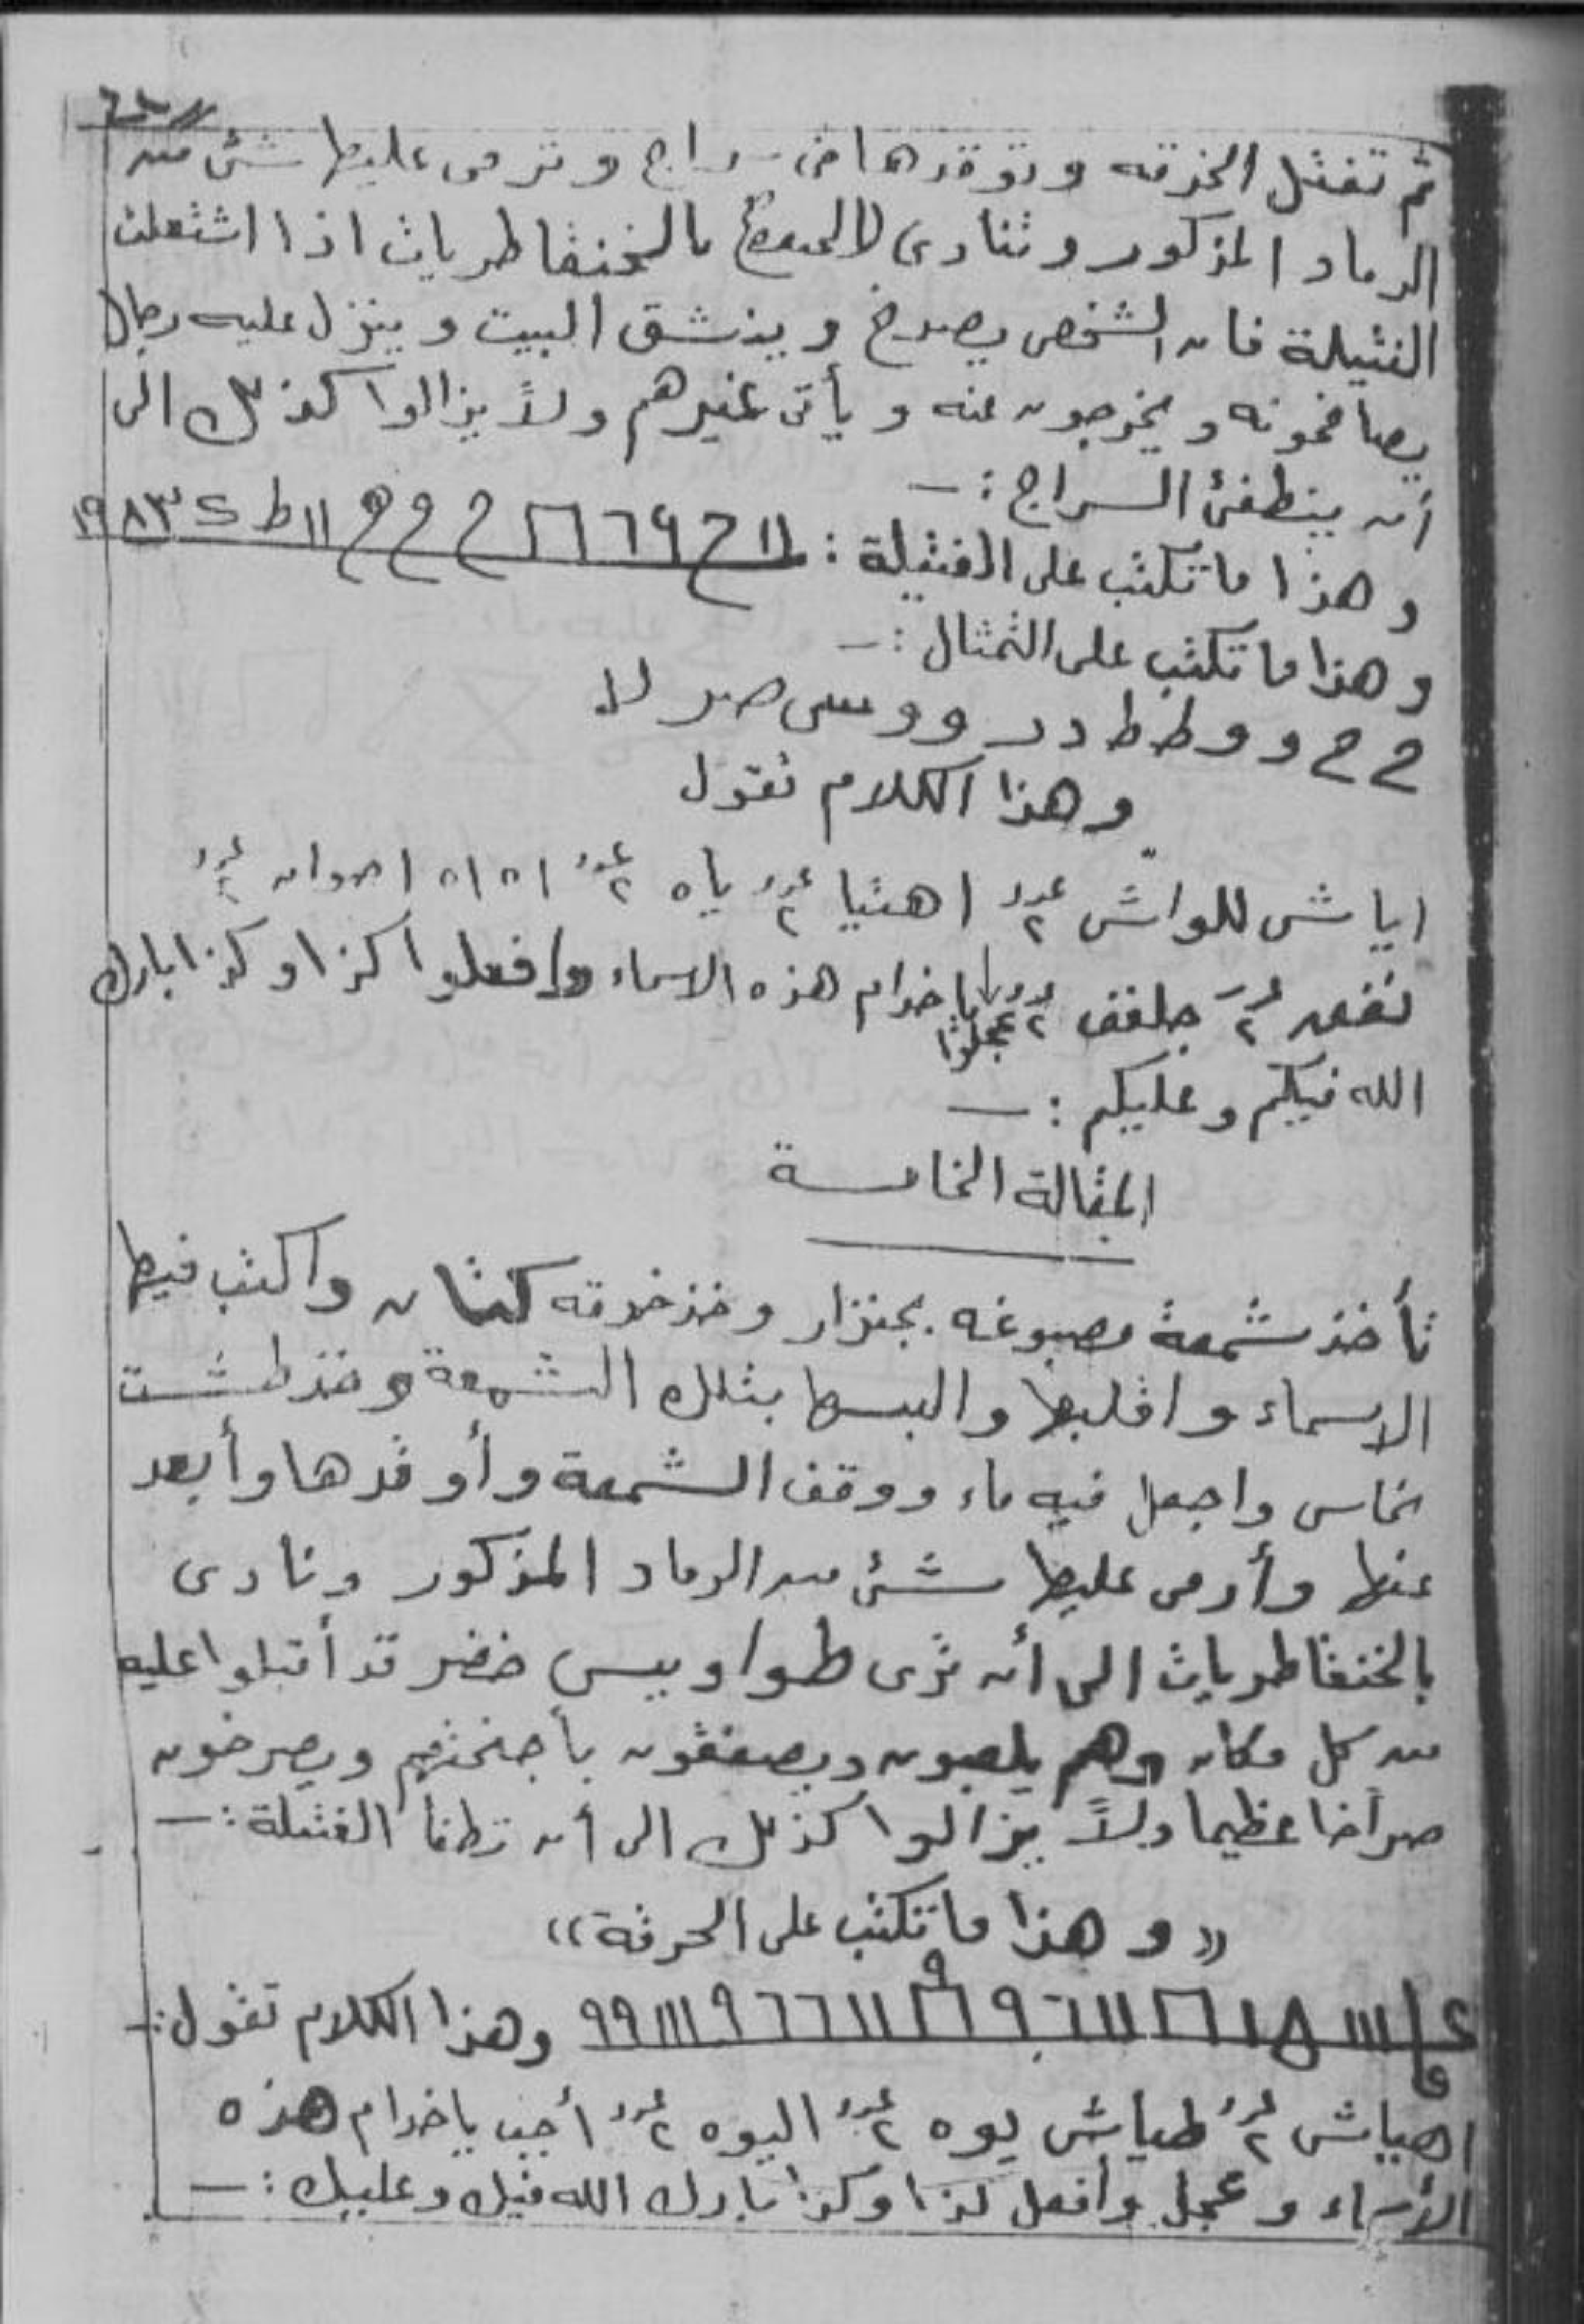 ثم تفتل الخرقه وتوقدها في سراج وترمى عليها شئ من
الرماد المذكور وتنادى بالخنقاطريات اذا اشتعلت
الفتيلة فان الشخص يصرخ وينشق البيت وينزل عليه رجال
يصافحونه ويخرجون عنه ويأتى غيرهم ولا يزالوا كذلك الى
أن ينطفئ السراج :ــ
وهذا ما تكتب على الفتيلة :
وهذا ما تكتب على التمثال :ــ
ح ح و و ط ط د د و و س ص لا
وهذا الكلام تقول
اياش للواش عدد ٢ اهتيا عدد ٢ ياه عدد ٢ اه اه عدد ٢
عدد ٢ جلفف عدد ٢ عجلوا يا خدام هذه الاسماء وافعلوا كذا وكذا بارك
الله فيكم وعليكم :ــ
المقالة الخامسة
تأخذ شمعة مصبوغه بجنزار وخذ خرقه كتان واكتب فيها
الاسماء واقلبها والبسها بتلك الشمعة وخذ طشت
نحاس واجعل فيه ماء ووقف الشمعة وأوقدها وأبعد
عنها وأرمى عليها شئ من الرماد المذكور ونادى
بالخنقاطريات الى أن ترى طواويس خضر قد أقبلوا عليه
من كل مكان وهم يلعبون ويصفقون بأجنحتهم ويصرخون
صراخا عظيما ولا يزالوا كذلك الى أن تطفا الفتيلة :ــ
«وهذا ما تكتب على الحرقة»
وهذا الكلام تقول :ــ
اهيياش عدد ٢ طياش يوه عدد ٢ اليوه عدد ٢ أجب يا خدام هذه
الأسماء وعجل وافعل كذا وكذا بارك الله فيك وعليك :ــ